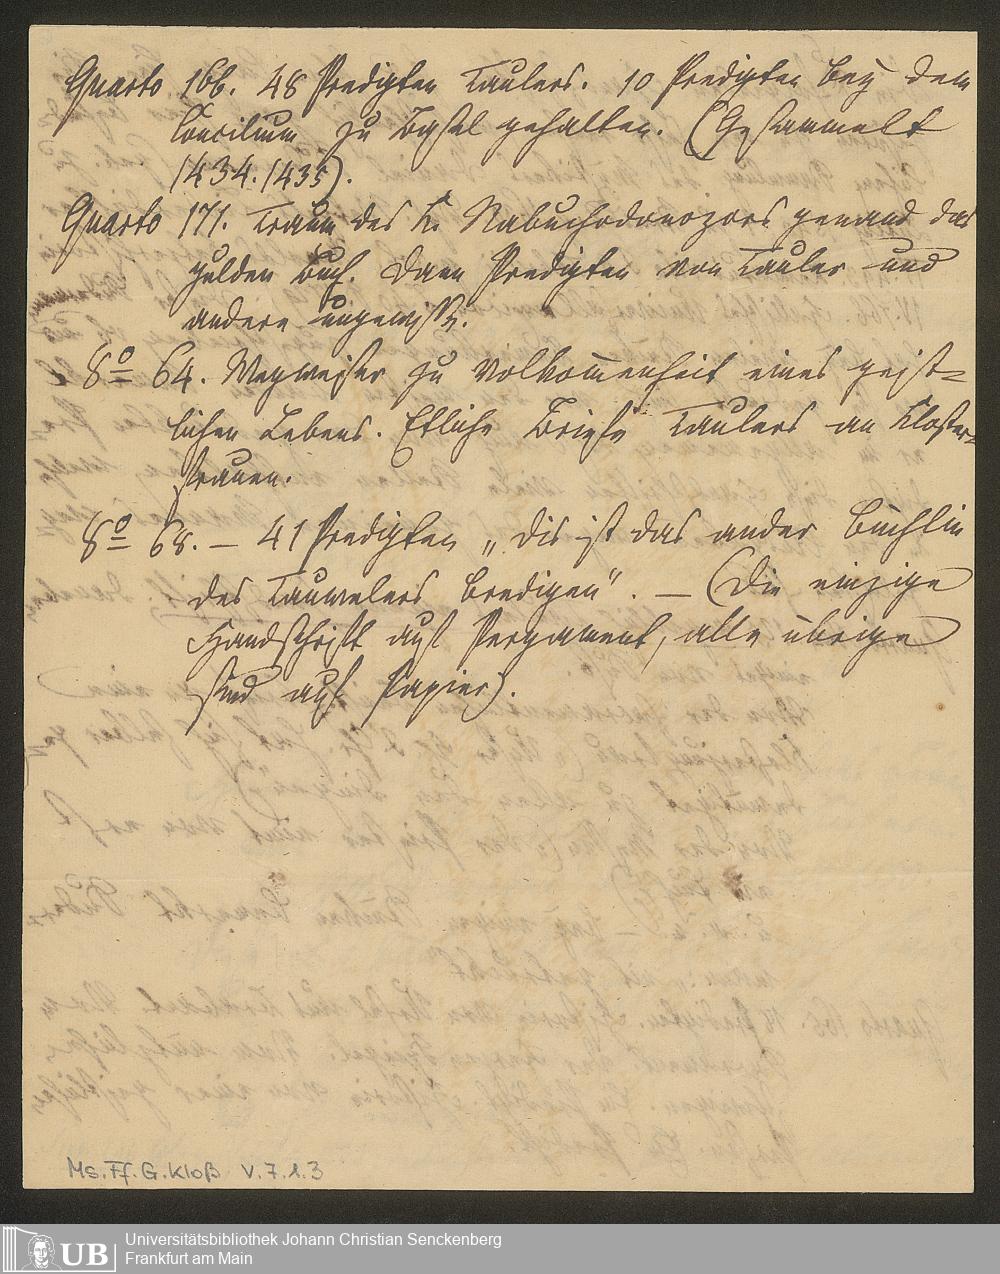 Quarto 166. 48 Predigten Taulers. 10 Predigten bey dem
Concilium zu Basel gehalten. (Gesammelt
1434.1435).
Quarto 171. Traum des K. Nabuchodonozors genand das
gulden Buch. Dann Predigten von Tauler und
andere ungewisse.
8o 64. Wegweiser zu Volkom̅enheit eines geist=
lichen Lebens. Etliche Briefe Taulers an Kloster=
frauen.
8o 68. — 41 Predigten „dis ist das ander Büchlin
des Tauwelers Bredigen". — (Die einzige
Handschrift auf Pergament, alle übrige
sind auf Papier).
Ms. Ff. G. Kloß V. 7. 1. 3
UB
Universitätsbibliothek Johann Christian Senckenberg
Frankfurt am Main